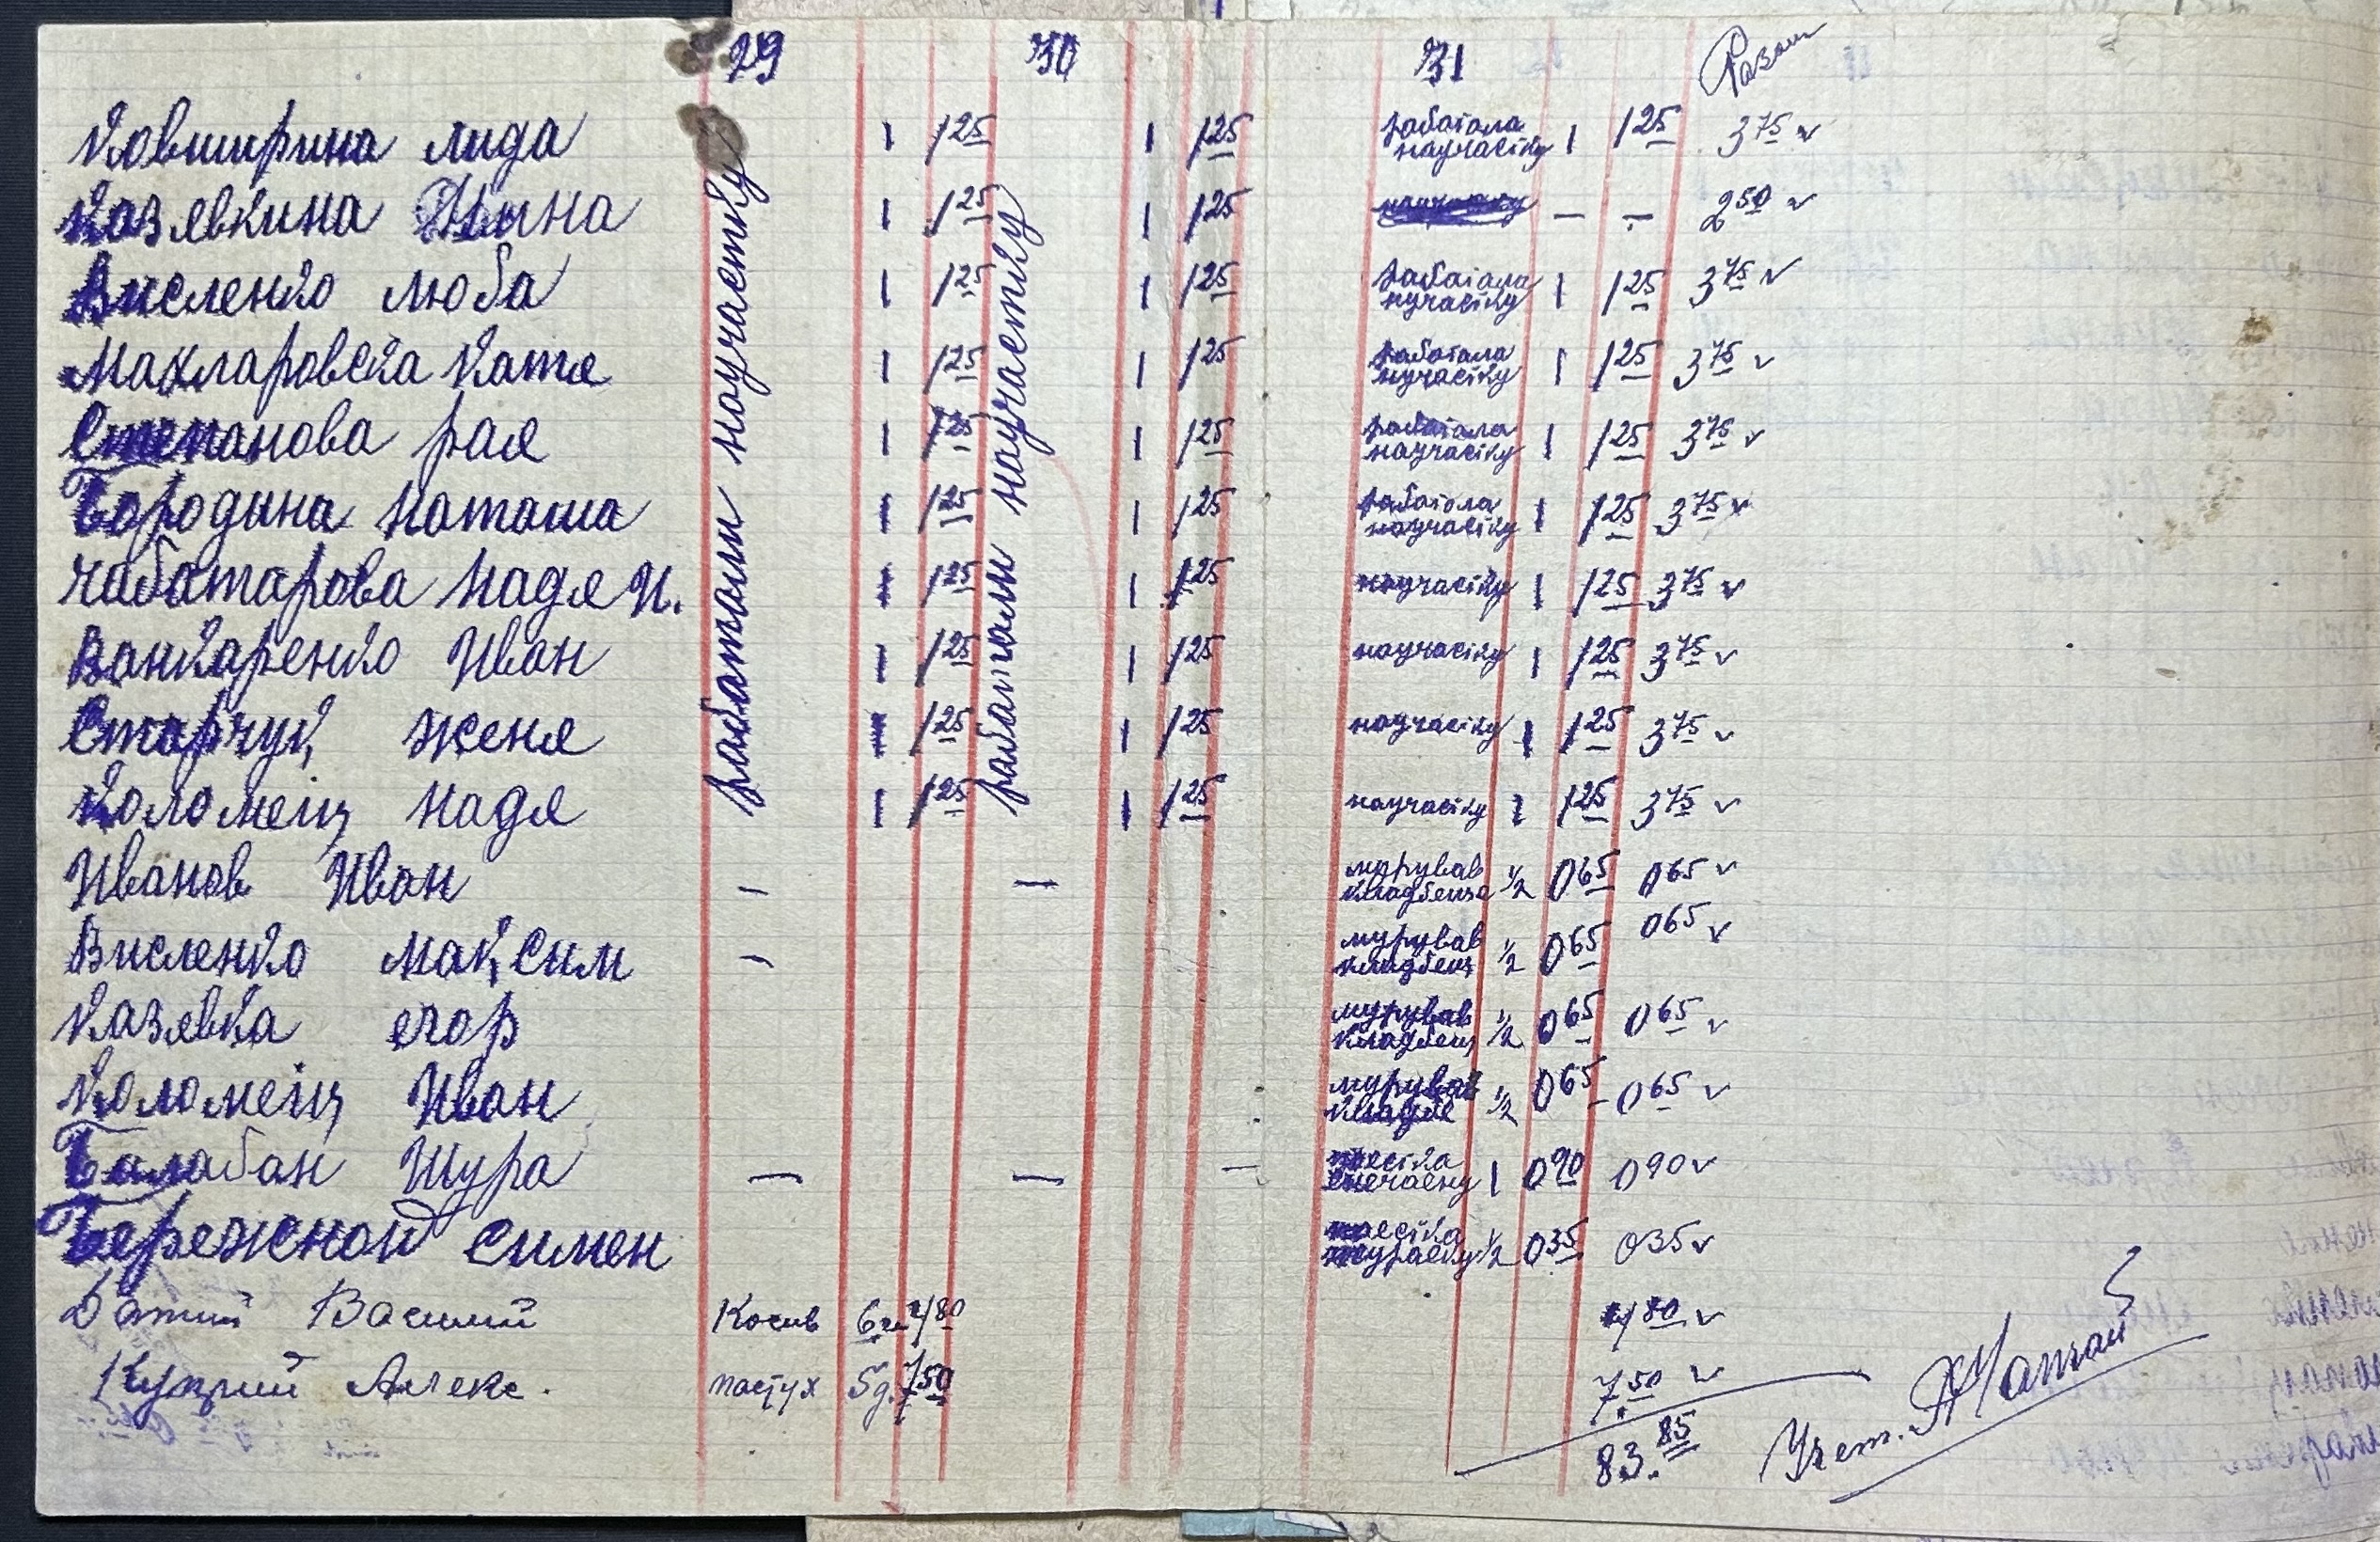 29 30 31 Разом
Ковширина лида 1 1 25 1 1 25 работала научастку 1 1 25 3 75
Казявкина Нина 1 1 25 1 1 25 — — 2 50
Висленко люба 1 1 25 1 1 25 работала нучастку 1 1 25 3 75
Махларовска Катя 1 1 25 1 1 25 работала нучастку 1 1 25 3 75
Степанова рая 1 1 25 1 1 25 работала научастку 1 1 25 3 75
Бородина Наташа 1 1 25 1 1 25 работала научастку 1 1 25 3 75
чабатарова Надя И. 1 1 25 1 1 25 научастку 1 1 25 3 75
Ванкаренко Иван 1 1 25 1 1 25 научастку 1 1 25 3 75
Старчук женя 1 1 25 1 1 25 научастку 1 1 25 3 75
Коломеиц Надя 1 1 25 1 1 25 научастку 1 1 25 3 75
работали научастку
работали научастку
Иванов Иван — — мурував кладбеща 1/2 0 65 0 65
Висленко максим — мурував кладбещ 1/2 0 65 0 65
Казявка егор мурував кладбещ 1/2 0 65 0 65
Коломеиц Иван мурував кладбе 1/2 0 65 0 65
Балабан Шура — — — 1 0 90 0 90
Бережной Симен 1/2 0 35 0 35
Василий Косив 6 га 4 80 4 80
Куцрий Алекс. пастух 5 д. 7 50 7 50
83. 85
Учет.